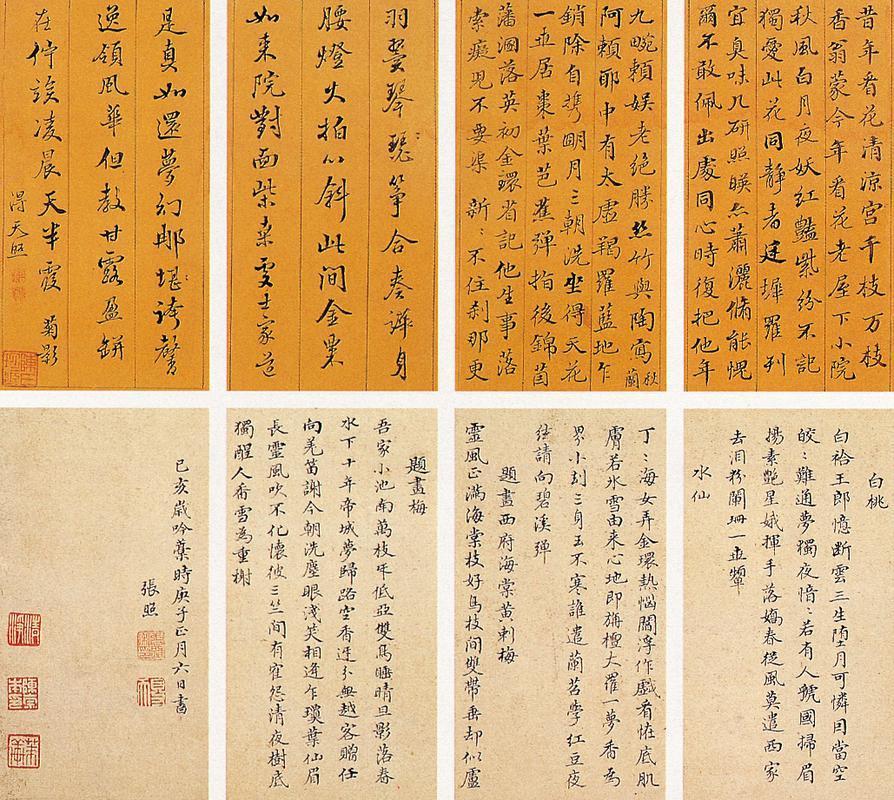 昔年看花清涼宫千枝万枝
香翁蒙今年看花老屋下小院
秋風白月夜妖紅豔紫紛不記
獨愛此花同静者廷墀羅列
宜臭味几研照暎点蕭灑脩能愧
爾不敢佩出處同心時復把他年
九畹頼娱老絶勝丝竹與陶寫 秋蘭
阿頼耶中有太虚羯羅藍地乍
銷除自携明月三朝洗坐得天花
一並居棗葉芭蕉弹指後錦茵
藩溷落英初金環省記他生事落
索癡児不要渠新〻不住刹那更
羽霎琴瑟筝合奏誰身
腰燈火拍以斜此間金粟
如来院對面柴桑處士家道
是真如還夢幻耶堪誇聲
逸領風華但教甘露盈缾
在佇謏凌晨天半霞 菊影
得天照
白桃
白袷王郎憶断雲三生堕月可憐目當空
皎〻難通夢獨夜愔〻若有人虢國掃眉
揚素艶星娥揮手落嬌春從風莫遣西家
去泪粉闌珊一並颦
水仙
丁〻海女弄金環熱惱閻浮作戲看怪底肌
膚若氷雪由来心地即旃檀大羅一夢香為
界小刧三身玉不寒誰遣蘭苕學紅豆夜
往請向碧溪殫
題畫西府海棠黄刺梅
靈風正满海棠枝好鳥枝間雙帶垂却似盧
題畫梅
吾家小池南萬枝牙低亞雙鳥睡晴旦影落春
水下十年帝城夢歸路空香迕分無越客贈任
向羌笛謝今朝洗塵眼浅笑相逢乍瓊葉仙眉
長靈風吹不化懐彼三竺間有崔怨清夜樹底
獨醒人香雪為重榭
己亥歲吟藁時庚子正月六日書
張照